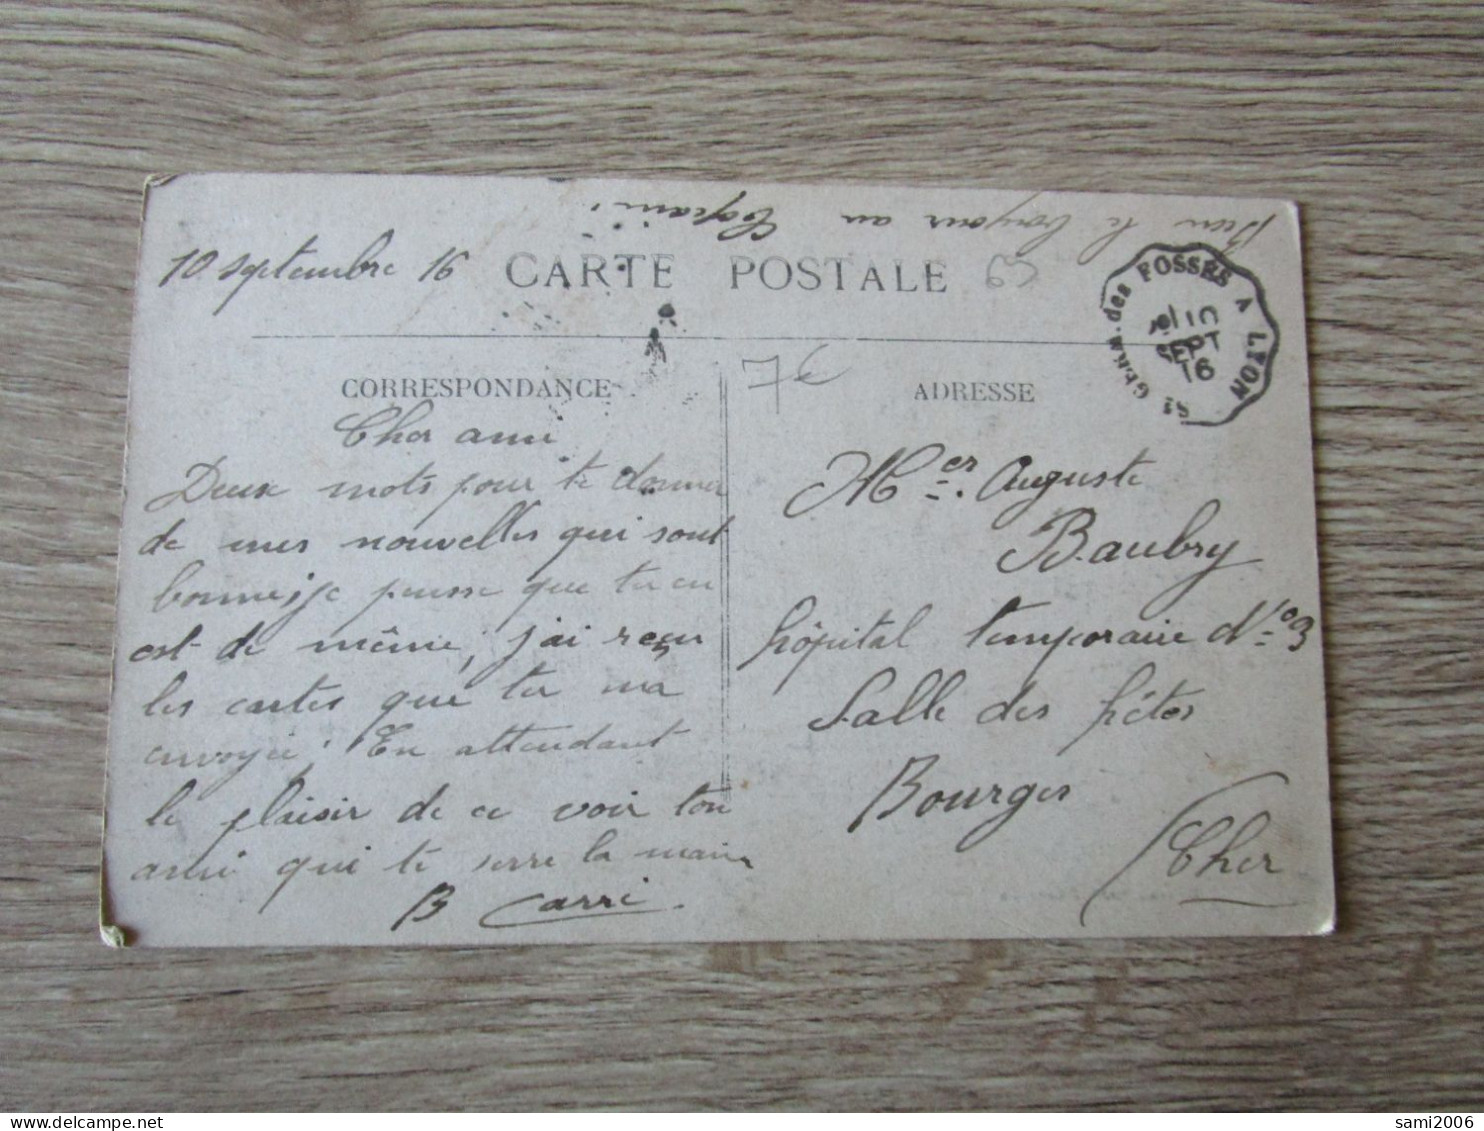 Bien le bonjour au Copain.
10 septembre 16
CARTE POSTALE
63
St GERM. des FOSSES A LYON
10
SEPT
16
7€
CORRESPONDANCE
Cher ami
Deux mots pour te donner
de mes nouvelles qui sont
bonnes je pense que tu en
est de même, j'ai reçu
les cartes que tu ma
envoyée. En attendant
le plaisir de ce voir ton
ami qui te serre la main
B Carri
ADRESSE
Mer Auguste
Baubry
hôpital temporaire No 3
Salle des fêtes
Bourges
Cher
sami2006